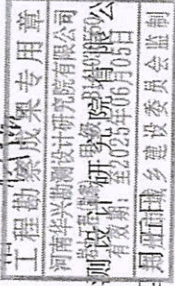 工程勘察成果专用章
河南华兴勘测设计研究院有限公司
测设计研究院有限公
有效期：至2025年06月05日
城乡建设委员会监制